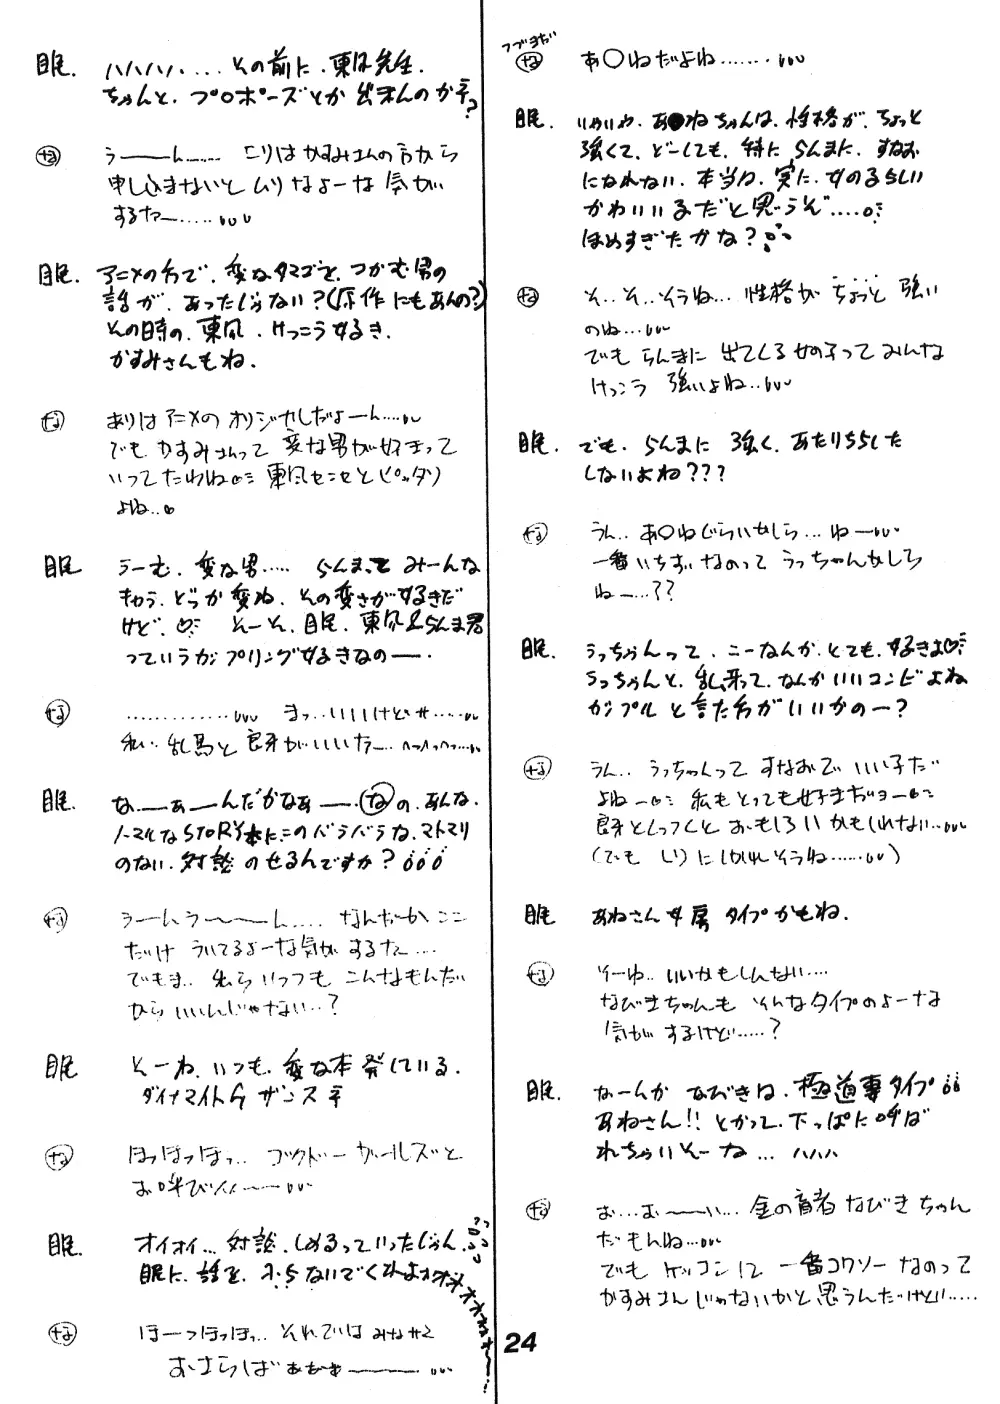 つづきだ
な あ○ねだよね……‥‥
眠. いやいや、あ●ねちゃんは、性格が、ちょっと
強くて、どーしても、特に らんまに、すなお
になれない、本当は、実に、女のるらしい
かわいいるだと思うぞ….。
ほめすぎたかな?
な そ‥そ‥そうね… 性格が ちょっと 強い
のね…‥
でも らんまに 出てくる女の子って みんな
けっこう 強いよね…‥
眠. でも、らんまに 強く、あたりちらした
しないよね???
な うん‥ あ○ねぐらいかしら… ねー‥
一番いちずなのって うっちゃんかしら
ねー…??
眠. うっちゃんって、こーなんか、とても、好きよ♡
うっちゃんと、乱来って、なんかいいコンビよね
カップルと言た方がいいかのー?
な うん‥ うっちゃんって すなおで いい子だ
よねー 私もとっても好きだョー
良牙とくっつくと おもしろいかもしれない‥
(でも しりにしかれそうね……‥)
眠 あねさん女房タイプかもね.
な そーゆ‥ いいかもしんない….
なびきちゃんも そんなタイプのよーな
気が するけど…..?
眠. なーんか なびきは、極道妻タイプ
あねさん!! とかって、下っぱに呼ば
れちゃいそーな … ハハハ
な お…おー〜い… 金の亡者なびきちゃん
だもんね…‥
でも ケッコン後 一番コワソーなのって
かすみさんじゃないかと思うんだけど…..
眠. ハハハハ.... その前に、東風先生.
ちゃんと、プロポーズとか 出来んのか?
な うー――ん…… こりは かすみさんの方から
申し込まないと ムリなよーな 気が
するなー…..‥
眠. アニメの方で、変なタマゴと、つかむ男の
話が、あったじゃない?(原作にもあんの?)
その時の、東風、けっこう好き.
かすみさんもね.
な ありは アニメの オリジナルだよーん…‥
でも かすみさんって 変な男が好きって
いってたわね 東風センセとピッタリ
よね‥
眠 うーむ、変な男….. らんまって みーんな
きゃら、どっか変ね、その変さが好きだ
けど、♡ そーそ、眠、東風&らんま君
っていうカップリング好きなのー.
な …………‥ まっ…いいけどサ….‥
私‥乱馬と 良牙がいいなー‥へっへっへっ…‥
眠. な――ぁ――んだかなぁ――. なの、あんな、
ノーマルなSTORY本に、このバラバラな、マトマリ
のない、対談 のせるんですか?
な うーんうー〜〜ん…. なんだか ここ
だけ ういてるよーな気が するな….
でもま‥ 私ら いっつも こんなもんだ
から いいんじゃない‥?
眠 そーね、いつも、変な本発している.
ダイナマイトG ザンス
な ほっほっほっ‥ ゴクドーガールズと
お呼び〜――‥
眠. オイオイ… 対談、しめるっていったじゃん.
眠に、話を、ふらないでくれよォォォォ
な ほーっほっほっ‥ それでは みなサマ
おさらばぁぁぁ――――‥
24